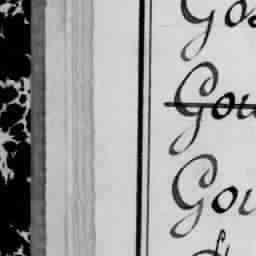 Gos
Gou
Gou